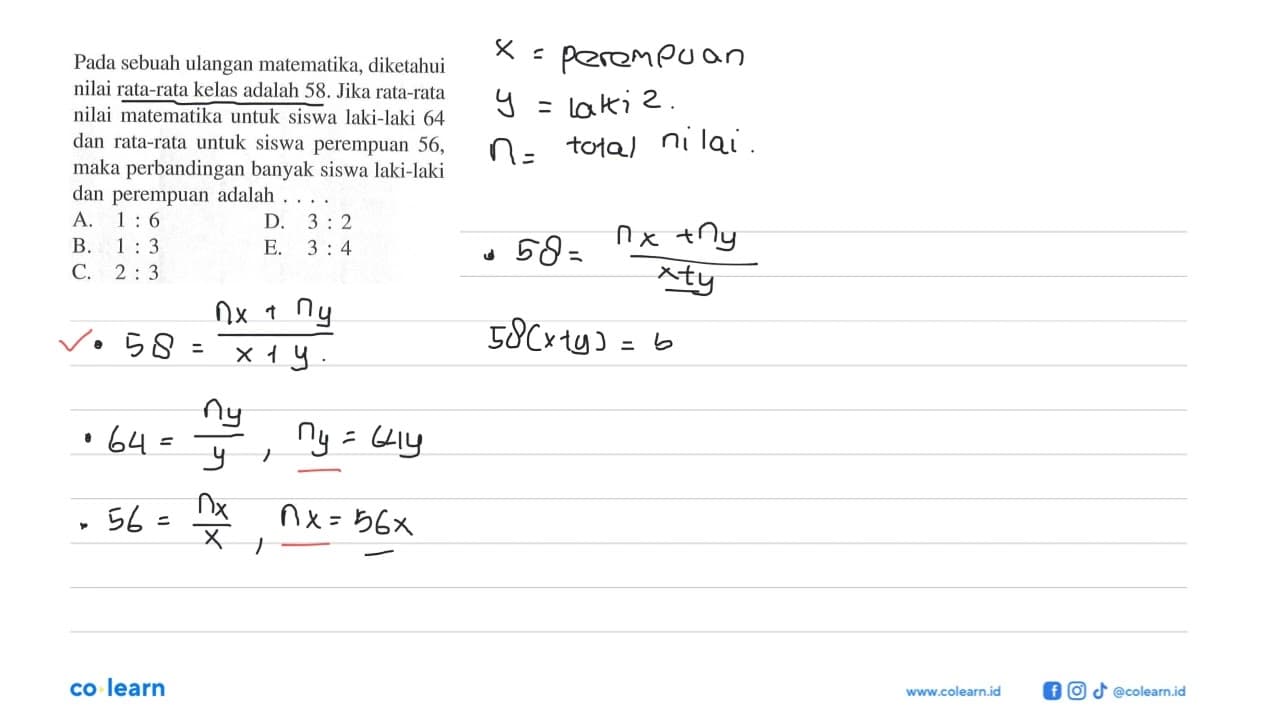 Pada sebuah ulangan matematika, diketahui
nilai rata-rata kelas adalah 58. Jika rata-rata
nilai matematika untuk siswa laki-laki 64
dan rata-rata untuk siswa perempuan 56,
maka perbandingan banyak siswa laki-laki
dan perempuan adalah . . . .
A. 1 : 6 D. 3 : 2
B. 1 : 3 E. 3 : 4
C. 2 : 3
• 58 = nx + ny / x + y .
• 64 = ny / y , ny = 64y
• 56 = nx / x , nx = 56x
x = perempuan
y = laki 2.
n = total nilai.
• 58 = nx + ny / x+y
58(x+y) = 6
co learn
www.colearn.id
@colearn.id